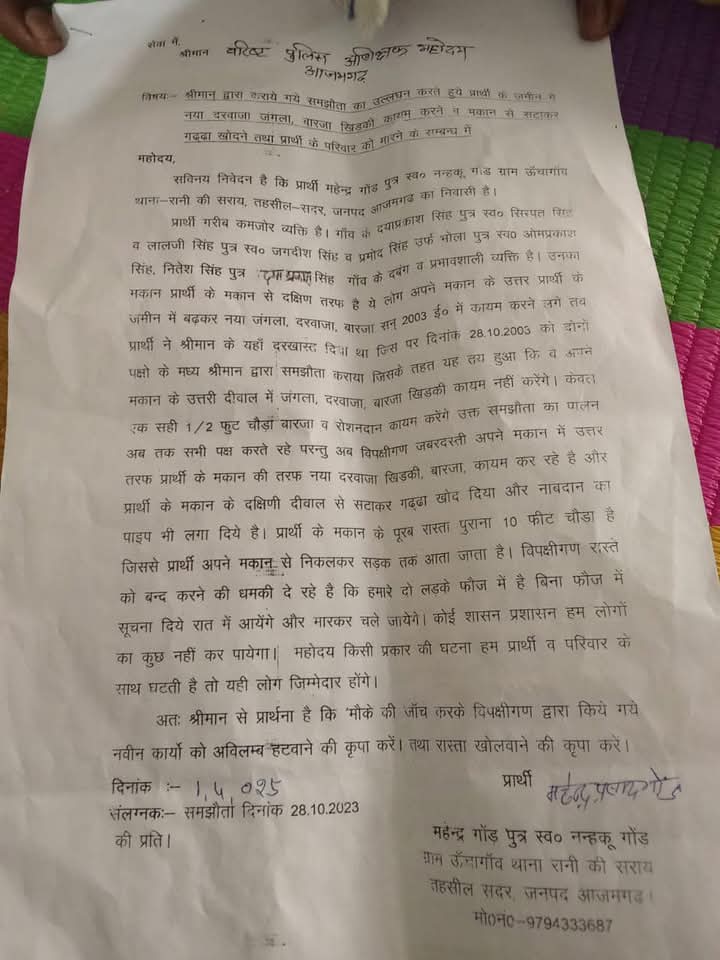 सेवा में,
श्रीमान वरिष्ट पुलिस अधिक्षक महोदय
आजमगढ़
विषयः- श्रीमान द्वारा कराये गये समझौता का उल्लघंन करते हुये प्रार्थी के जमीन में
नया दरवाजा जंगला, बारजा खिडकी कायम करने व मकान से सटाकर
गढ्ढा खोदने तथा प्रार्थी के परिवार को मारने के सम्बन्ध में
महोदय,
सविनय निवेदन है कि प्रार्थी महेन्द्र गोंड पुत्र स्व० नन्हकू गोंड ग्राम ऊँचागाँव
थाना-रानी की सराय, तहसील-सदर, जनपद आजमगढ का निवासी है।
प्रार्थी गरीब कमजोर व्यक्ति है। गाँव के दयाप्रकाश सिंह पुत्र स्व० सिरपत सिंह
व लालजी सिंह पुत्र स्व० जगदीश सिंह व प्रमोद सिंह उर्फ भोला पुत्र स्व० ओमप्रकाश
सिंह, नितेश सिंह पुत्र सिंह गाँव के दबंग व प्रभावशाली व्यक्ति है। उनका
मकान प्रार्थी के मकान से दक्षिण तरफ है ये लोग अपने मकान के उत्तर प्रार्थी के
जमीन में बढ़कर नया जंगला, दरवाजा, बारजा सन् 2003 ई० में कायम करने लगे तब
प्रार्थी ने श्रीमान के यहाँ दरखास्त दिया था जिस पर दिनांक 28.10.2003 को दोनों
पक्षो के मध्य श्रीमान द्वारा समझौता कराया जिसके तहत यह तय हुआ कि वे अपने
मकान के उत्तरी दीवाल में जंगला, दरवाजा, बारजा खिडकी कायम नहीं करेंगे। केवल
एक सही 1/2 फुट चौड़ा बारजा व रोशनदान कायम करेंगे उक्त समझौता का पालन
अब तक सभी पक्ष करते रहे परन्तु अब विपक्षीगण जबरदस्ती अपने मकान में उत्तर
तरफ प्रार्थी के मकान की तरफ नया दरवाजा खिडकी, बारजा, कायम कर रहे है और
प्रार्थी के मकान के दक्षिणी दीवाल से सटाकर गढ्ढा खोद दिया और नाबदान का
पाइप भी लगा दिये है। प्रार्थी के मकान के पूरब रास्ता पुराना 10 फीट चौडा है
जिससे प्रार्थी अपने मकान से निकलकर सड़क तक आता जाता है। विपक्षीगण रास्ते
को बन्द करने की धमकी दे रहे है कि हमारे दो लड़के फौज में है बिना फौज में
सूचना दिये रात में आयेंगे और मारकर चले जायेगे। कोई शासन प्रशासन हम लोगों
का कुछ नहीं कर पायेगा। महोदय किसी प्रकार की घटना हम प्रार्थी व परिवार के
साथ घटती है तो यही लोग जिम्मेदार होंगे।
अतः श्रीमान से प्रार्थना है कि 'मौके की जॉच करके विपक्षीगण द्वारा किये गये
नवीन कार्यो को अविलम्ब हटवाने की कृपा करें। तथा रास्ता खोलवाने की कृपा करें।
दिनांक :- 1,4,025 प्रार्थी महेन्द्र प्रसाद गोंड
संलग्नकः- समझौता दिनांक 28.10.2023
की प्रति।
महेन्द्र गोंड पुत्र स्व० नन्हकू गोंड
ग्राम ऊँचागाँव थाना रानी की सराय
तहसील सदर, जनपद आजमगढ।
मो0नं0-9794333687